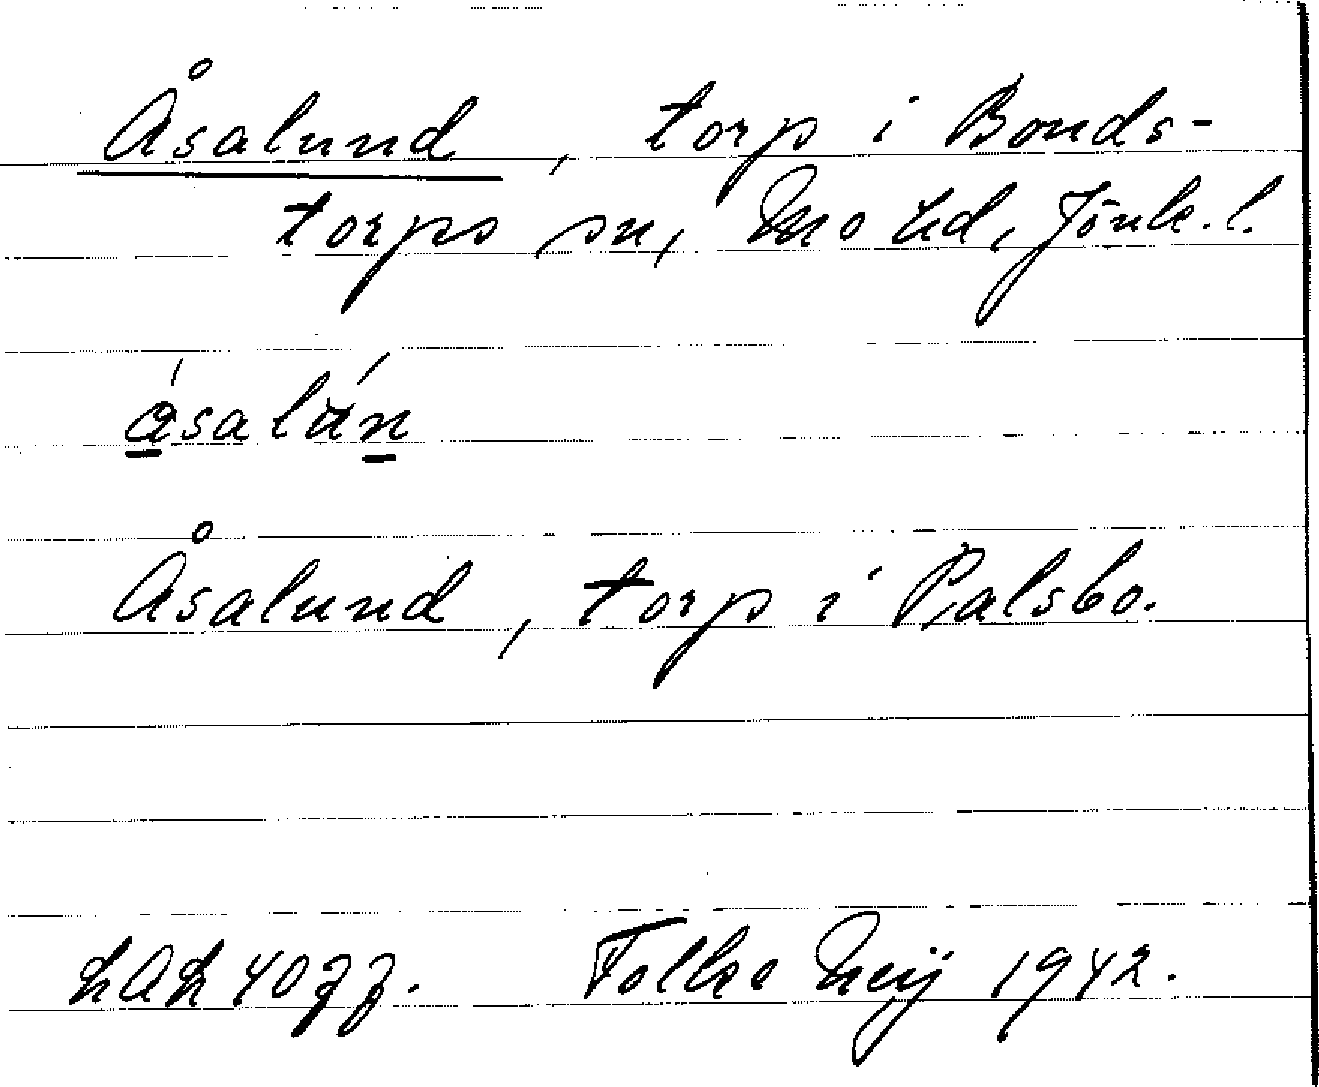 Åsalund, torp i Bonds-
torps sn, Mo hd, Jönk. l.
ásalún
Åsalund, torp i Palsbo.
Folke Meij 1942.